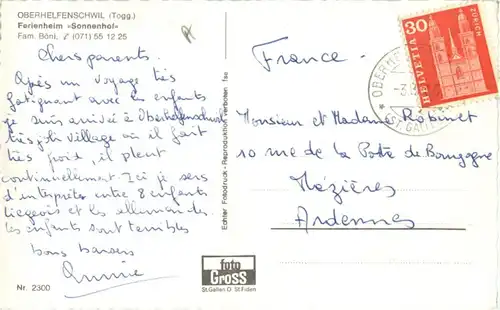 OBERHELFENSCHWIL (Togg.)
Ferienheim «Sonnenhof»
Fam. Böni, ✆ (071) 55 12 25
Chers parents.
Après un voyage très
fatiguant avec les enfants
je suis arrivée à Oberhelfenschwil
très joli village où il fait
très froid, il pleut
continuellement. Ici je sers
d'interprète entre 8 enfants
liégeois et les allemands.
les enfants sont terribles
bons baisers
Annie
Nr. 2300
Echter Fotodruck - Reproduktion verboten
foto
Gross
St. Gallen O St. Fiden
France.
Monsieur et Madame Robinet
10 rue de la Porte de Bourgogne
Mézières
Ardennes
30
HELVETIA
ZÜRICH